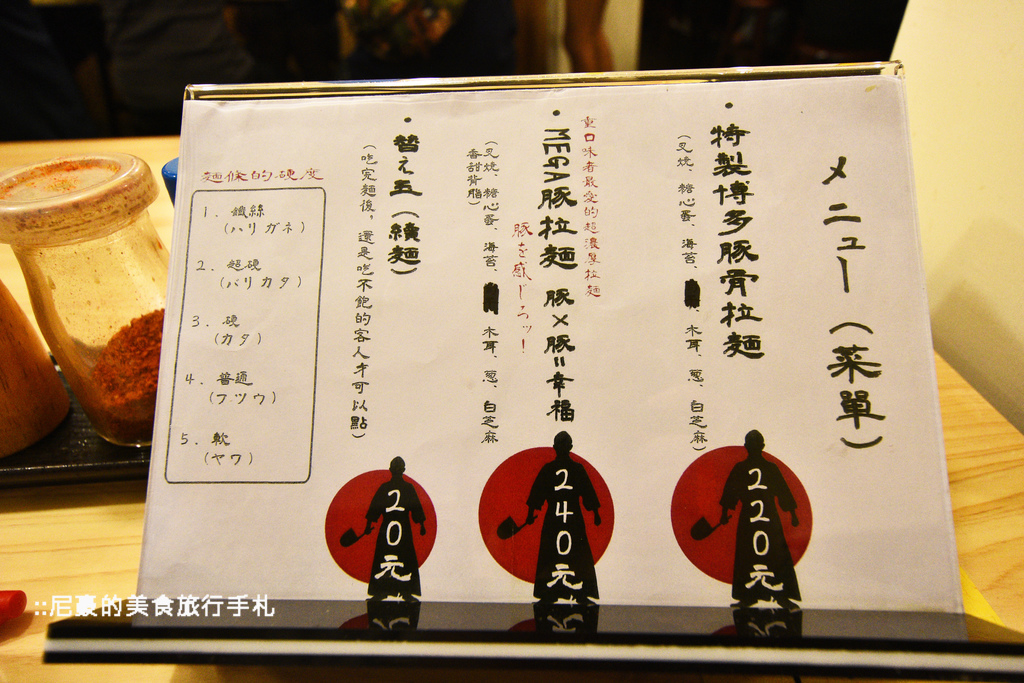 メニュー(菜單)
•特製博多豚骨拉麵
(叉燒、糖心蛋、海苔、木耳、蔥、白芝麻)
220元
重口味者最愛的超濃厚拉麵
•MEGA豚拉麵 豚×豚=幸福
豚を感じろッ!
(叉燒、糖心蛋、海苔、木耳、蔥、白芝麻
香甜背脂)
240元
•替え玉(續麵)
(吃完麵後,還是吃不飽的客人才可以點)
20元
麵條的硬度
1. 鐵絲
(ハリガネ)
2. 超硬
(バリカタ)
3. 硬
(カタ)
4. 普通
(フツウ)
5. 軟
(ヤワ)
::尼豪的美食旅行手札